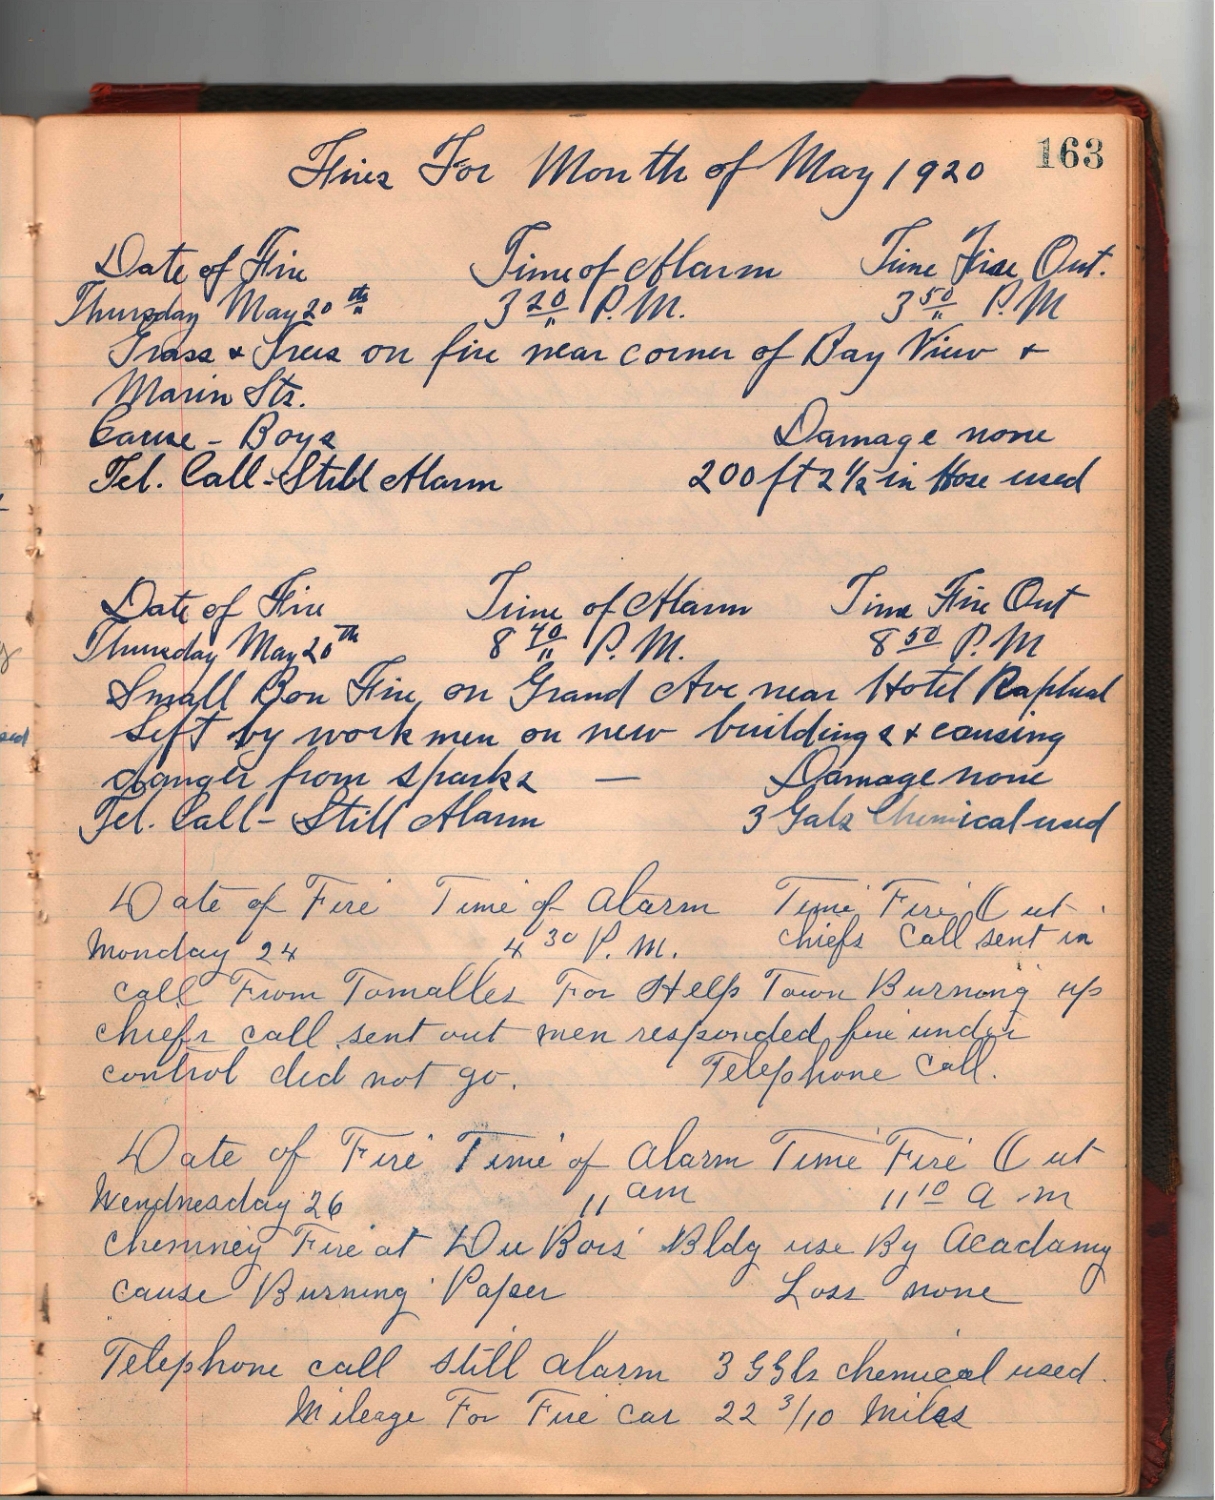 163
Fires For Month of May 1920
Date of Fire Time of Alarm Time Fire Out.
Thursday May 20th 3 20 P.M. 3 50 P.M
Grass & Trees on fire near corner of Bay View &
Marin Sts.
Cause - Boys Damage none
Tel. Call - Still Alarm 200 ft 2 1/2 in Hose used
Date of Fire Time of Alarm Time Fire Out
Thursday May 20th 8 40 P.M. 8 50 P.M
Small Bon Fire on Grand Ave near Hotel Raphael
left by workmen on new buildings & causing
danger from sparks — Damage none
Tel. Call - Still Alarm 3 Gals Chemical used
Date of Fire Time of Alarm Time Fire Out.
Monday 24 4 30 P.M. chiefs Call sent in
call From Tomalles For Help Town Burning up
chiefs call sent out men responded fire under
control did not go. Telephone Call.
Date of Fire Time of Alarm Time Fire Out
Wendnesday 26 11 am 11 10 a.m
chemney Fire at Du Bois Bldg use By Acadamy
cause Burning Paper Loss none
Telephone call still alarm 3 GGls chemical used.
Mileage For Fire Car 22 3/10 Miles